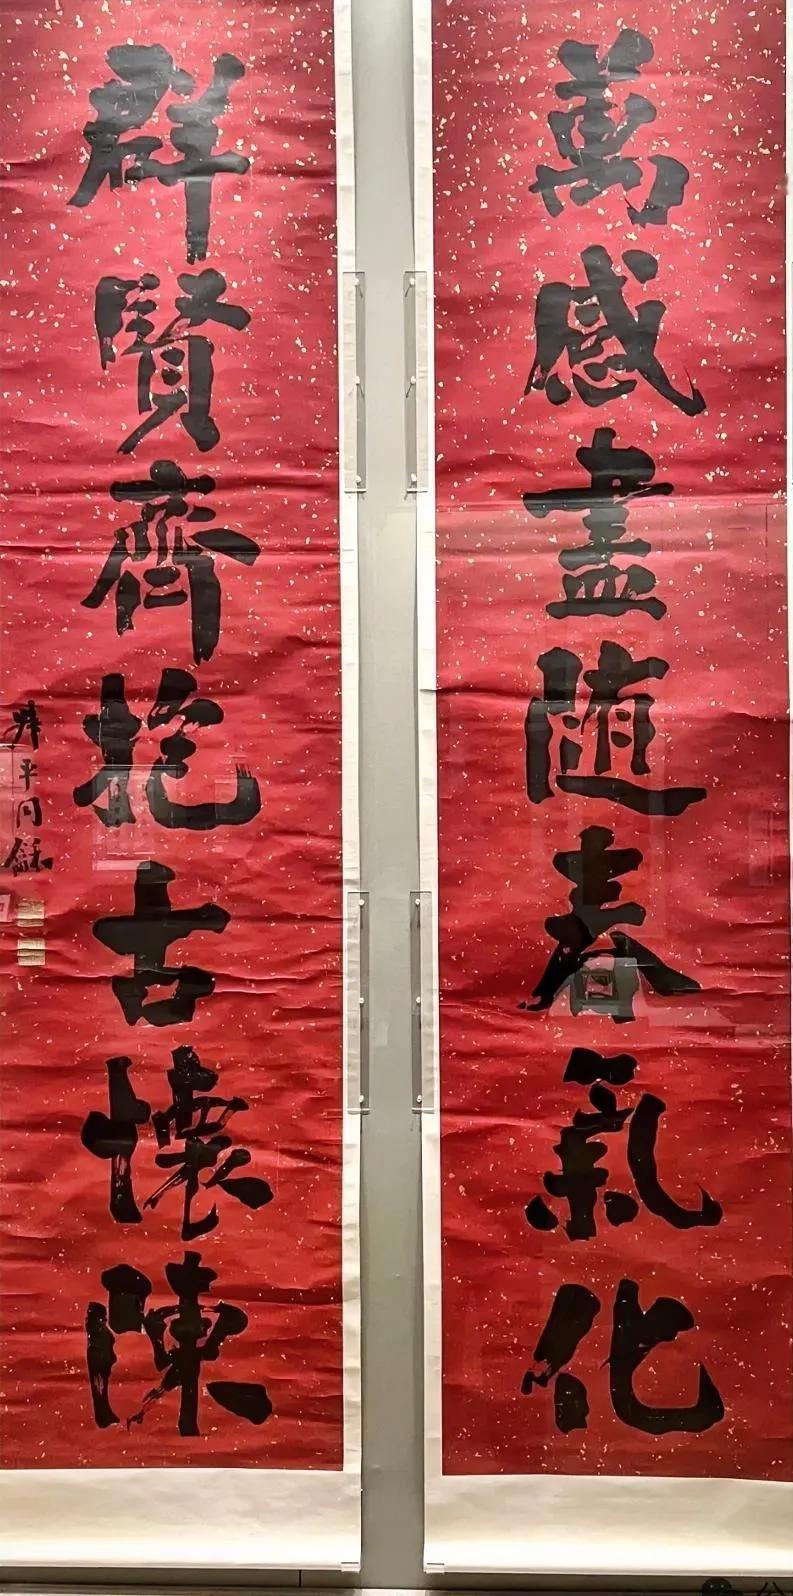 萬感盡随春氣化
群賢齊抱古懷陳
叔平同龢